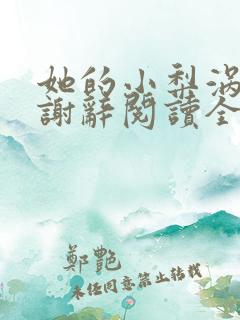 她的小梨涡
謝辭閱讀全
鄭艷
未任同意禁止转载